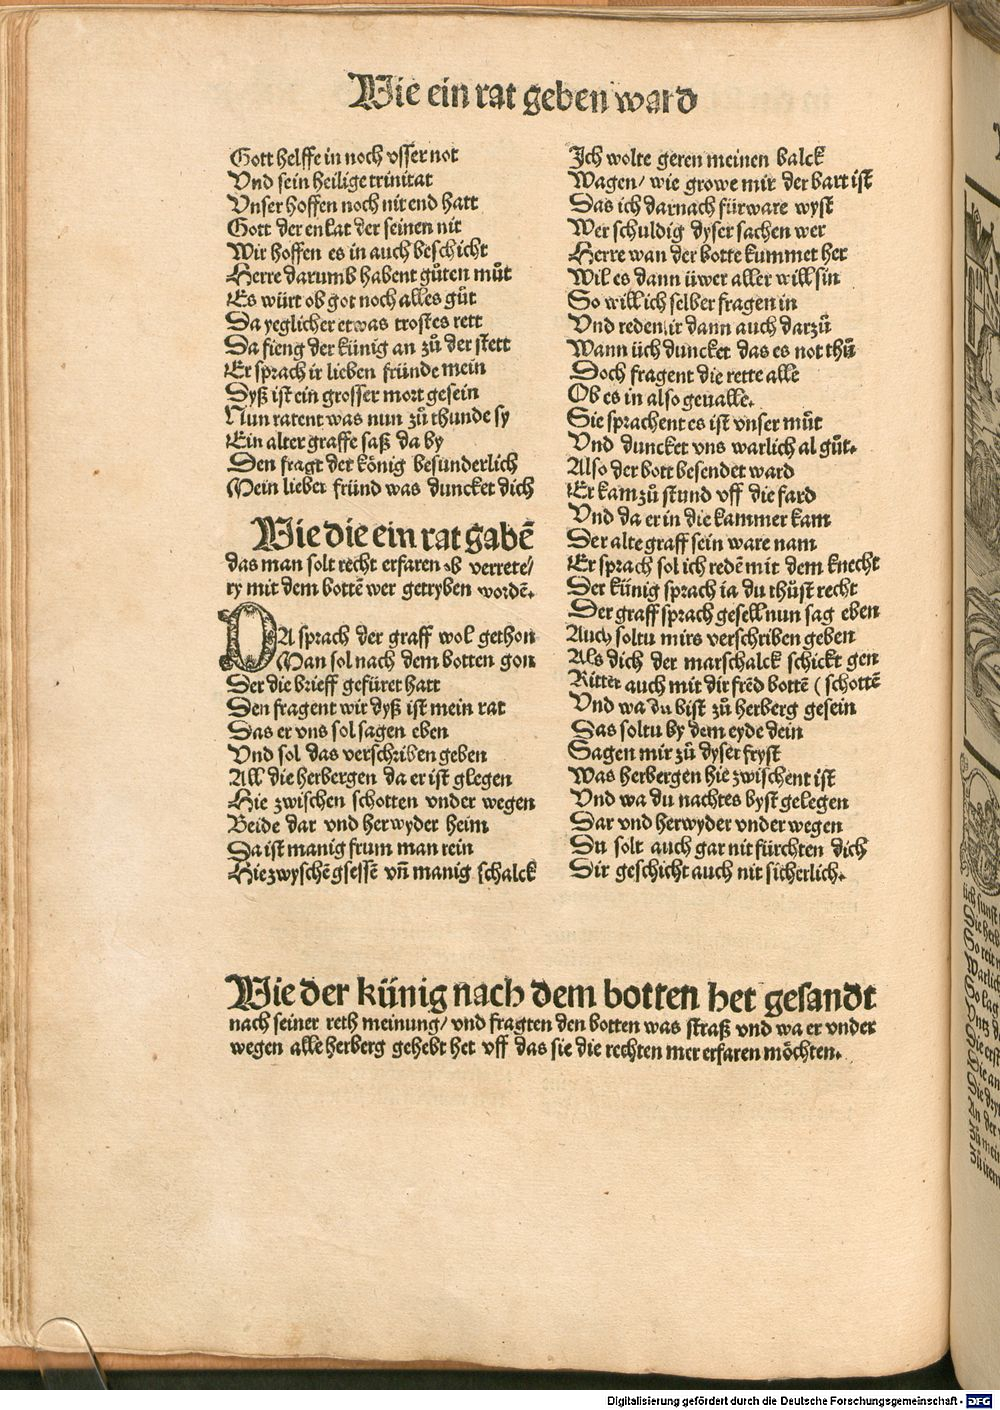 Wie ein rat geben ward
Gott helffe in noch vsser not
Vnd sein heilige trinitat
Vnser hoffen noch nit end hatt
Gott der enlat der seinen nit
Wir hoffen es in auch beschicht
Herre darumb habent gůten můt
Es würt ob got noch alles gůt
Da yeglicher etwas trostes rett
Da fieng der künig an zů der stett
Er sprach ir lieben fründe mein
Dyß ist ein grosser mort gesein
Nun ratent was nun zů thunde sy
Ein alter graffe saß da by
Den fragt der könig besunderlich
Mein lieber fründ was duncket dich
Wie die ein rat gabē
das man solt recht erfaren ob verrete/
ry mit dem bottē wer getryben wordē.
DA sprach der graff wol gethon
Man sol nach dem botten gon
Der die brieff gefüret hatt
Den fragent wir dyß ist mein rat
Das er vns sol sagen eben
Vnd sol das verschriben geben
All die herbergen da er ist glegen
Hie zwischen schotten vnder wegen
Beide dar vnd herwyder heim
Da ist manig frum man rein
Hie zwyschē gsessē vñ manig schalck
Ich wolte geren meinen balck
Wagen/ wie growe mir der bart ist
Das ich darnach fürware wyst
Wer schuldig dyser sachen wer
Herre wan der botte kummet her
Wil es dann üwer aller will sin
So will ich selber fragen in
Vnd reden ir dann auch darzů
Wann üch duncket das es not thů
Doch fragent die rette alle
Ob es in also geualle.
Sie sprachent es ist vnser můt
Vnd duncket vns warlich al gůt.
Also der bott besendet ward
Er kam zů stund vff die fard
Vnd da er in die kammer kam
Der alte graff sein ware nam
Er sprach sol ich redē mit dem knecht
Der künig sprach ia du thůst recht
Der graff sprach gesell nun sag eben
Auch soltu mirs verschriben geben
Als dich der marschalck schickt gen
Ritter auch mit dir frēd bottē ( schottē
Vnd wa du bist zů herberg gesein
Das soltu by dem eyde dein
Sagen mir zů dyser fryst
Was herbergen hie zwischent ist
Vnd wa du nachtes byst gelegen
Dar vnd herwyder vnder wegen
Du solt auch gar nit fürchten dich
Dir geschicht auch nit sicherlich.
Wie der künig nach dem botten het gesandt
nach seiner reth meinung/ vnd fragten den botten was straß vnd wa er vnder
wegen alle herberg gehebt het vff das sie die rechten mer erfaren möchten.
Digitalisierung gefördert durch die Deutsche Forschungsgemeinschaft - DFG